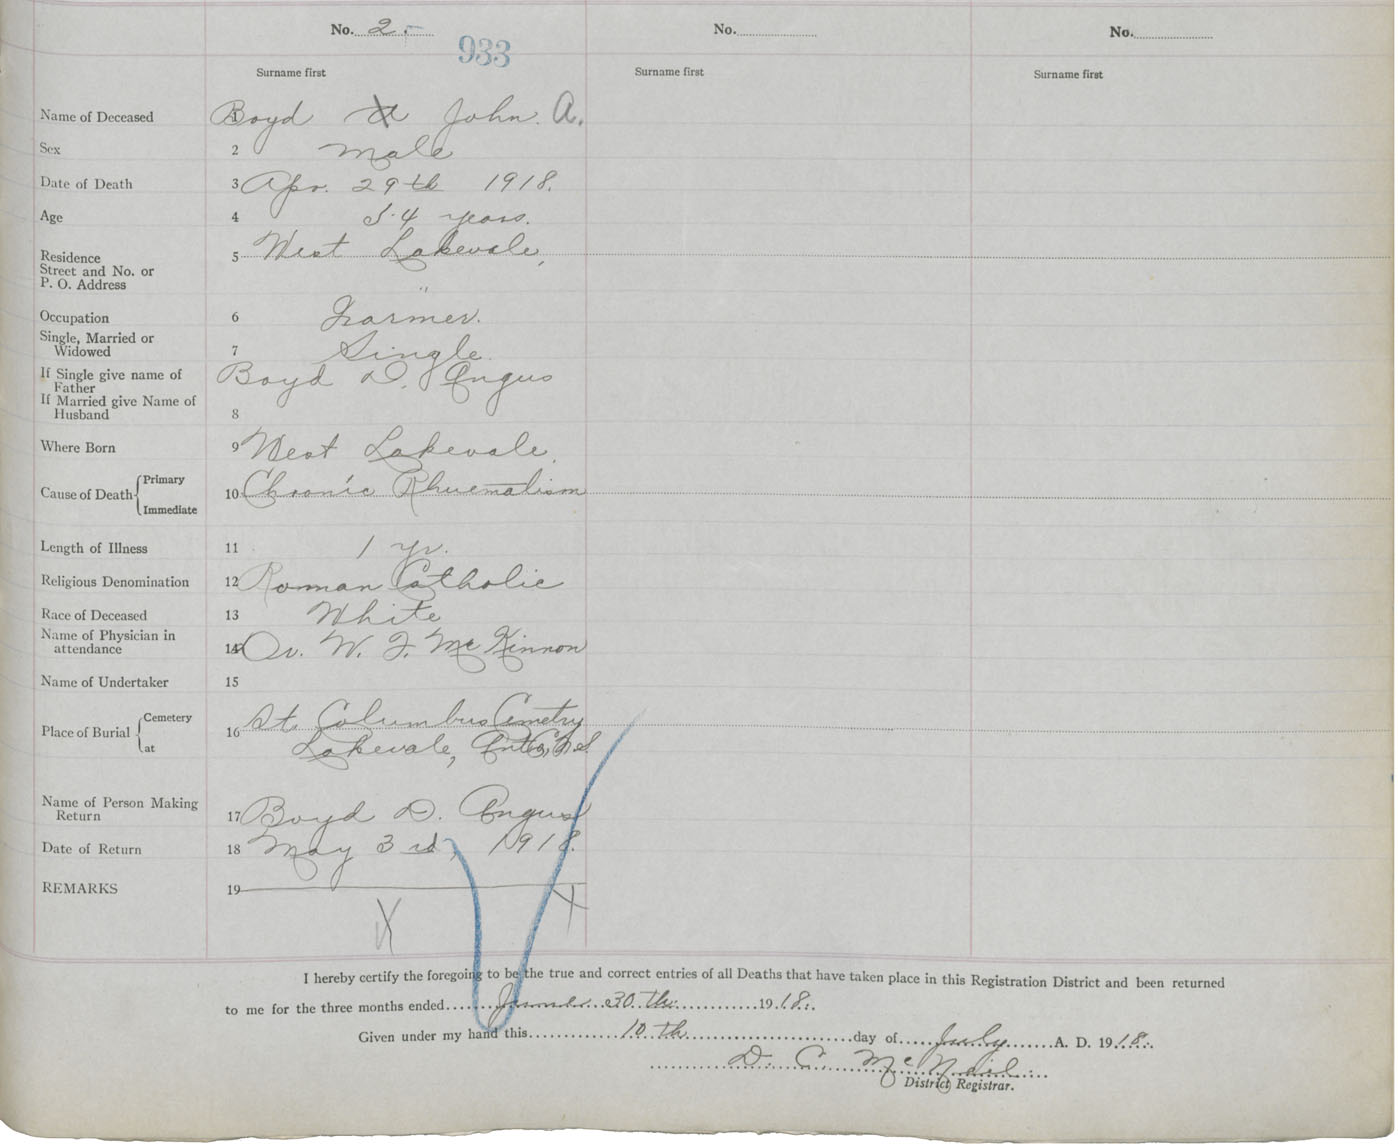 No. 2. No. No.
933
Surname first Surname first Surname first
Name of Deceased 1 Boyd John. A.
Sex 2 Male
Date of Death 3 Apr. 29th 1918.
Age 4 54 years.
Residence 5 West Lakevale,
Street and No. or
P. O. Address "
Occupation 6 Farmer.
Single, Married or
Widowed 7 Single.
If Single give name of Boyd D. Angus
Father
If Married give Name of
Husband 8
Where Born 9 West Lakevale.
Cause of Death { Primary
10 Chronic Rhuematism
Immediate
Length of Illness 11 1 yr.
Religious Denomination 12 Roman Catholic
Race of Deceased 13 White
Name of Physician in
attendance 14 Dr. W. F. McKinnon
Name of Undertaker 15
Place of Burial { Cemetery 16 St. Columbus Cemetry
at Lakevale, Ant. Co. N.S.
Name of Person Making
Return 17 Boyd D. Angus
Date of Return 18 May 3rd, 1918.
REMARKS 19
X X
I hereby certify the foregoing to be the true and correct entries of all Deaths that have taken place in this Registration District and been returned
to me for the three months ended June 30th. 1918.
Given under my hand this 10th day of July A. D. 1918.
D. C. McNeil
District Registrar.